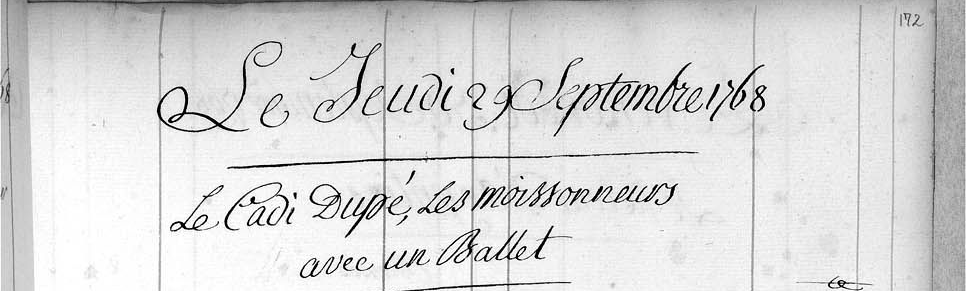 172
Le Jeudi 29 Septembre 1768
Le Cadi Dupé, Les moissonneurs
avec un Ballet